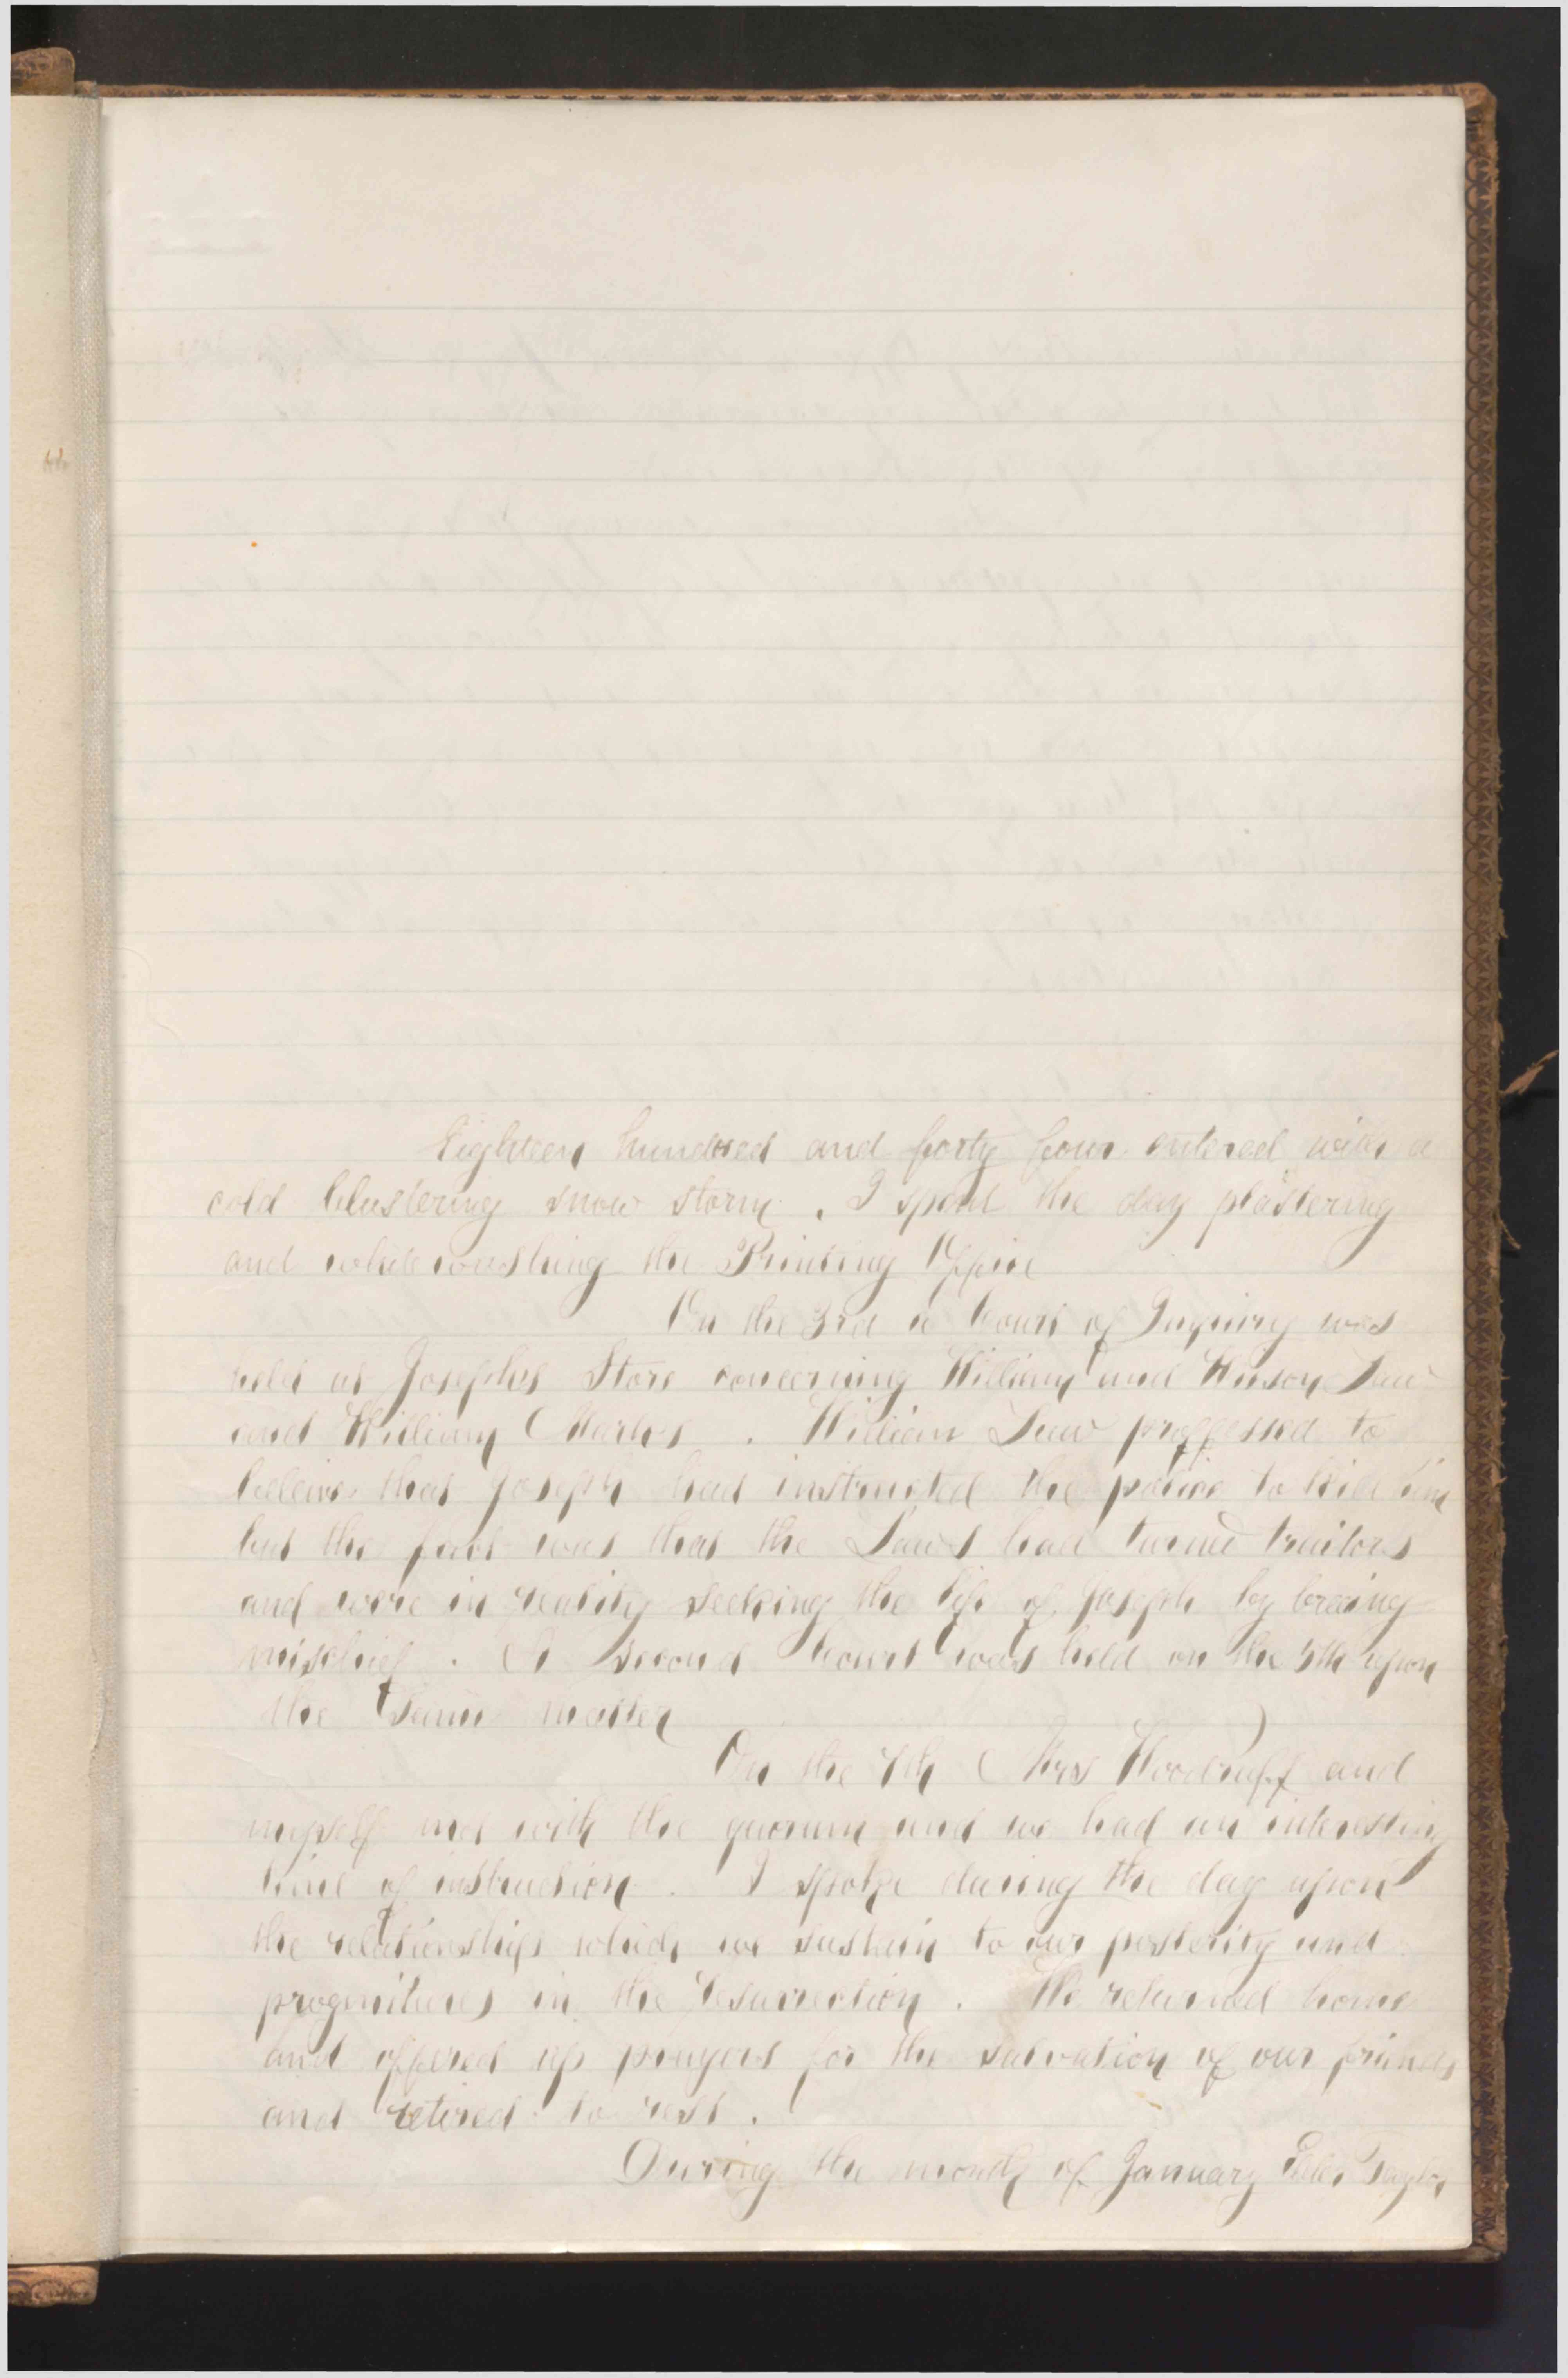 Eighteen hundred and forty four entered with a
cold blustering snow storm. I spent the day plastering
and whitewashing the Printing Office
On the 3rd a Court of Inquiry was
held at Josephs Store concerning William and Wilson Law
and William Marks. William Law proffessed to
beleive that Joseph had instructed the police to kill him
but the fact was that the Laws had turned traitors
and were in reality seeking the life of Joseph by
mischief. A Second Court was held on the 5th upon
the same matter
On the 7th Mrs Woodruff and
myself met with the quorum and we had an interesting
time of instruction. I spoke during the day upon
the relationship which we sustain to our posterity and
progenitures in the resurrection. We returned home
and offered up prayers for the salvation of our friends
and retired to rest.
During the month of January Elder Taylor